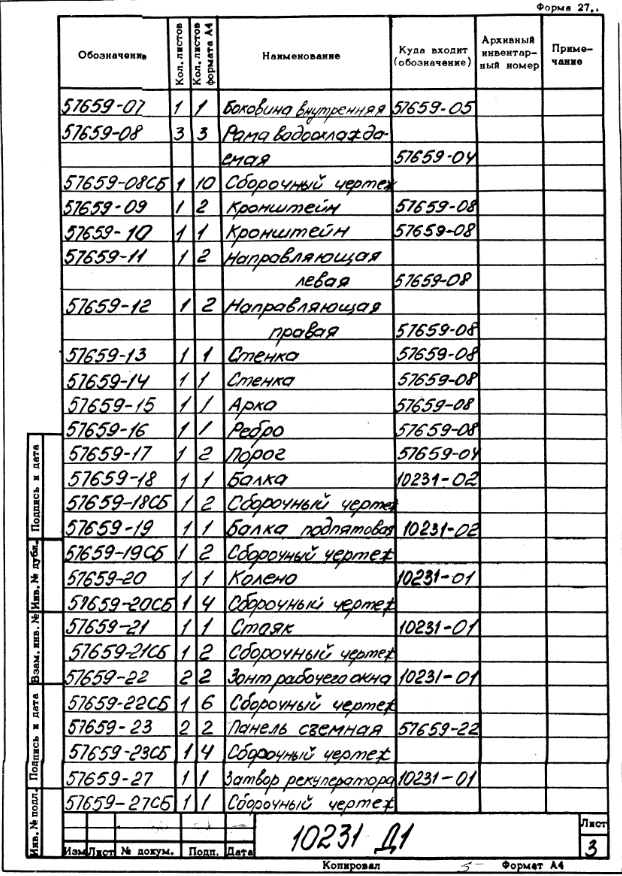 Форма 27..
Обозначение Кол. листов Кол. листов формата А4 Наименование Куда входит (обозначение) Архивный инвентарный номер Примечание
57659-07 1 1 Боковина внутренняя 57659-05
57659-08 3 3 Рама водоохлажда-
емая 57659-04
57659-08СБ 1 10 Сборочный чертеж
57659-09 1 2 Кронштейн 57659-08
57659-10 1 1 Кронштейн 57659-08
57659-11 1 2 Направляющая
левая 57659-08
57659-12 1 2 Направляющая
правая 57659-08
57659-13 1 1 Стенка 57659-08
57659-14 1 1 Стенка 57659-08
57659-15 1 1 Арка 57659-08
57659-16 1 1 Ребро 57659-08
57659-17 1 2 Порог 57659-04
57659-18 1 1 Балка 10231-02
57659-18СБ 1 2 Сборочный чертеж
57659-19 1 1 Балка подпятовая 10231-02
57659-19СБ 1 2 Сборочный чертеж
57659-20 1 1 Колено 10231-01
57659-20СБ 1 4 Сборочный чертеж
57659-21 1 1 Стояк 10231-01
57659-21СБ 1 2 Сборочный чертеж
57659-22 2 2 Зонт рабочего окна 10231-01
57659-22СБ 1 6 Сборочный чертеж
57659-23 2 2 Панель съемная 57659-22
57659-23СБ 1 4 Сборочный чертеж
57659-27 1 1 Затвор рекуператора 10231-01
57659-27СБ 1 1 Сборочный чертеж
Подпись и дата
Инв. № дубл.
Взам. инв. №
Подпись и дата
Инв. № подл.
Изм Лист № докум. Подп. Дата
10231 Д1
Лист
3
Копировал 5- Формат А4